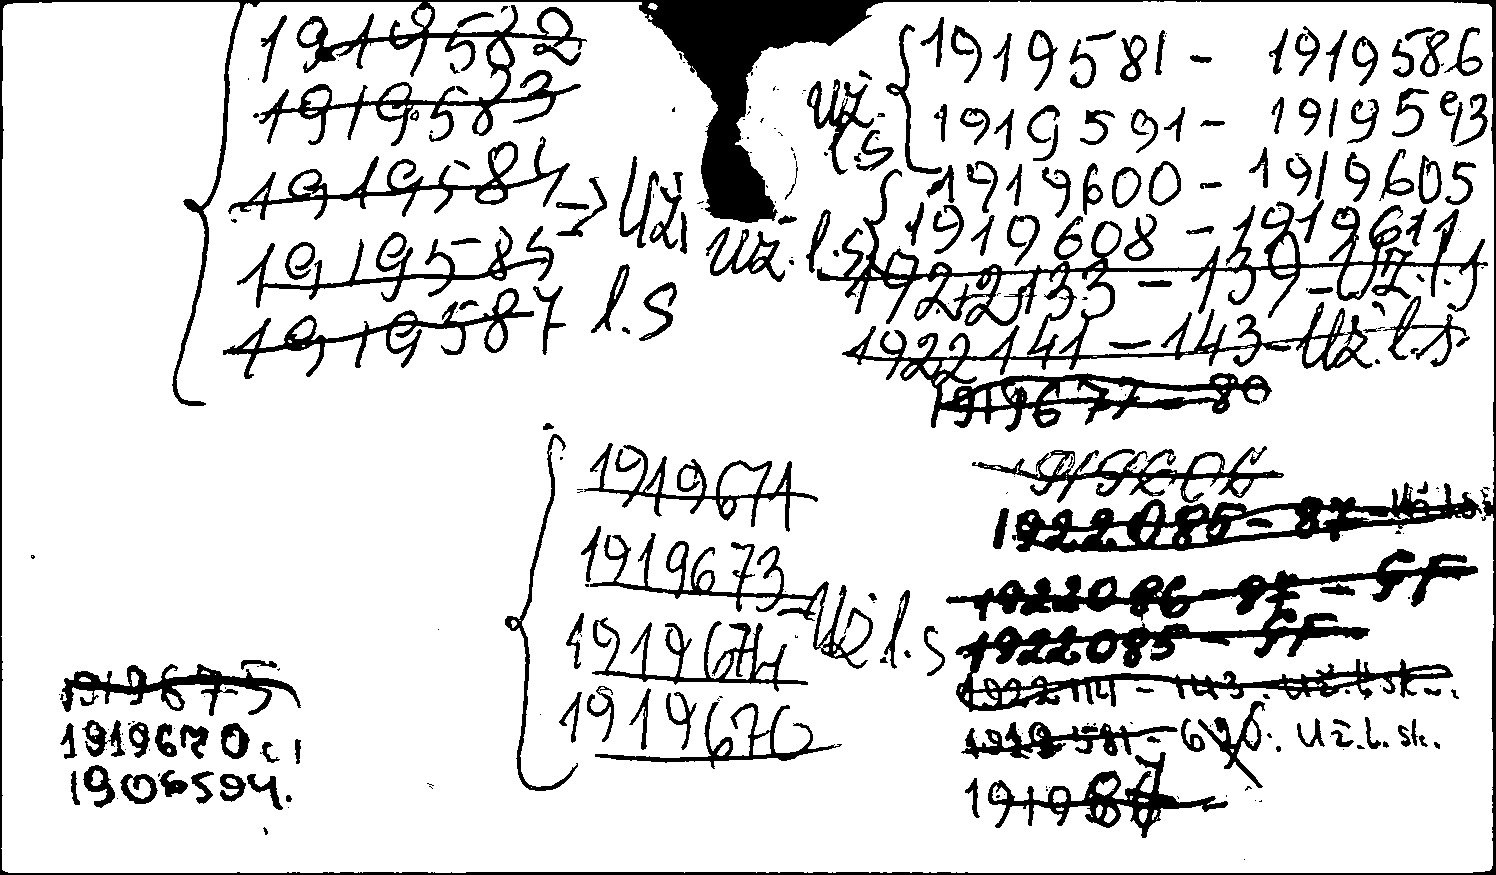 1919582
1919583
1919584
1919585
1919587
Už.
l.s
1919581 - 1919586
1919591 - 1919593
už.
l.s
1919600 - 1919605
1919608 - 1919611
už. l.s
1922133 - 139 - Už.l.s
1922141 - 143 - Už.l.s
1919677 - 80
1919671
1919673
1919674
1919676
Už l.s
1919606
1922085 - 87 - Už l.s
1922086 - 87 - GF
1922085 - GF
1922141 - 143. už.l.sk.
581 - 620. Už.l.sk.
19198
1919675
1919670
1906594.